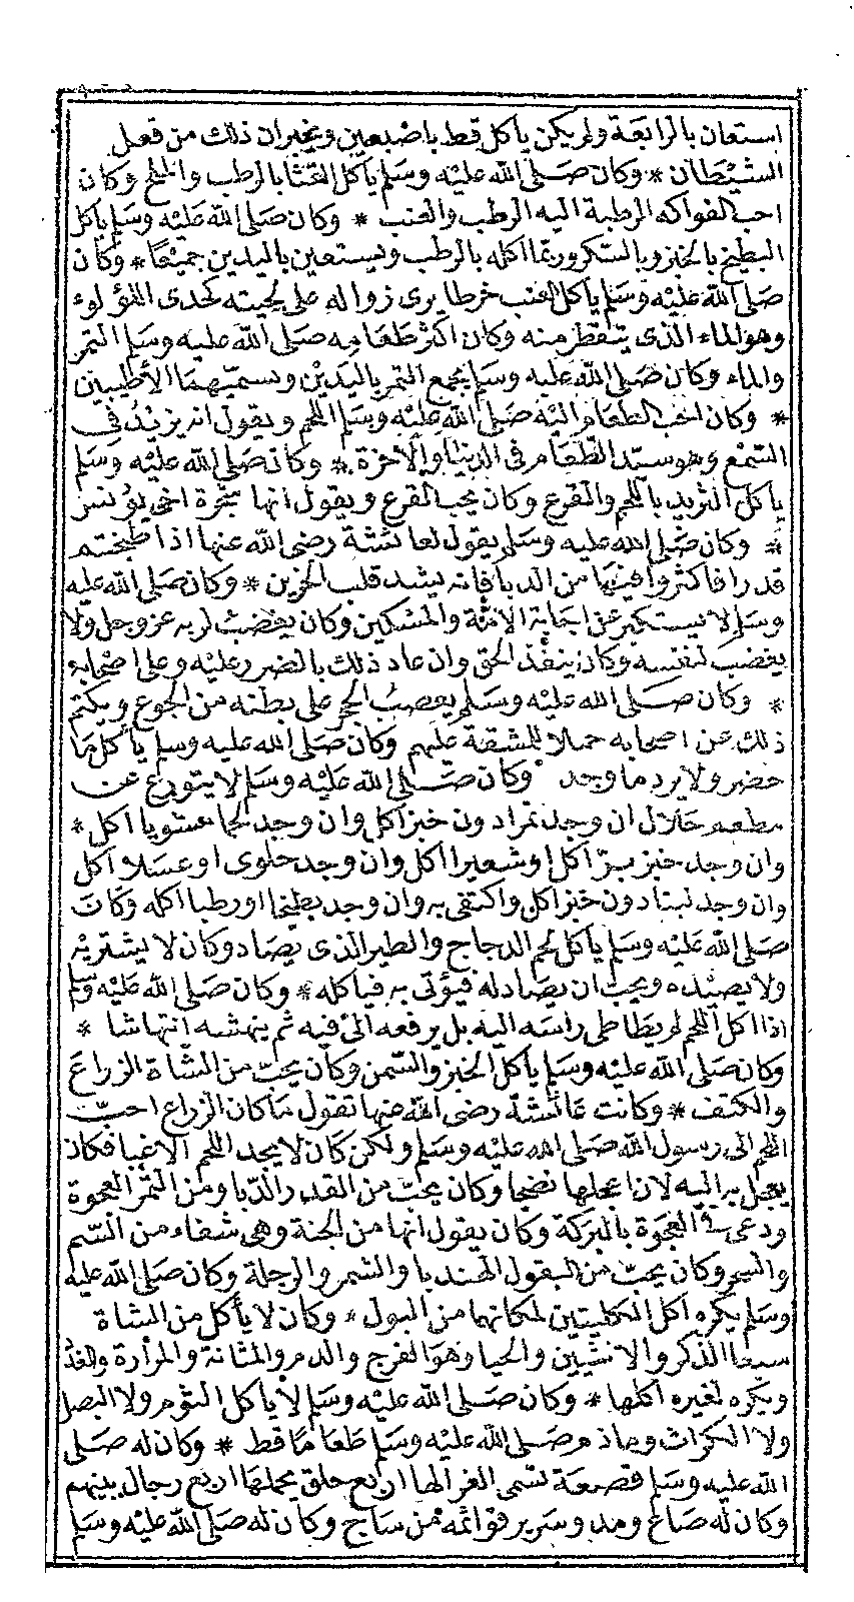 استعان بالرابعة ولم يكن يأكل قط باصبعين ويخبر ان ذلك من فعل
الشيطان * وكان صلى الله عليه وسلم يأكل القثا بالرطب والملح وكان
احب الفواكه الرطبة اليه الرطب والعنب * وكان صلى الله عليه وسلم يأكل
البطيخ بالخبز وبالسكر وربما اكله بالرطب ويستعين باليدين جميعا * وكان
صلى الله عليه وسلم يأكل العنب خرطا يرى زواله على لحيته كحدى اللؤلوء
وهو الماء الذى يتقطر منه وكان اكثر طعامه صلى الله عليه وسلم التمر
والماء وكان صلى الله عليه وسلم يجمع التمر باليدين ويسميهما الأطيبين
* وكان احب الطعام اليه صلى الله عليه وسلم اللحم ويقول انه يزيد فى
السمع وهو سيد الطعام فى الدنيا والاخرة * وكان صلى الله عليه وسلم
يأكل الثريد باللحم والقرع وكان يحب القرع ويقول انها شجرة اخى يونس
* وكان صلى الله عليه وسلم يقول لعائشة رضى الله عنها اذا طبختم
قدرا فاكثروا فيها من الدبا فانه يشد قلب الحزين * وكان صلى الله عليه
وسلم لا يستكبر عن اجابة الامة والمسكين وكان يغضب لربه عز وجل ولا
يغضب لنفسه وكان ينفذ الحق وان عاد ذلك بالضرر عليه وعلى اصحابه
* وكان صلى الله عليه وسلم يعصب الحجر على بطنه من الجوع ويكتم
ذلك عن اصحابه حملا للمشقة عليهم وكان صلى الله عليه وسلم يأكل ما
حضر ولا يرد ما وجد * وكان صلى الله عليه وسلم لا يتورع عن
مطعم حلال ان وجد تمرا دون خبز اكل وان وجد لحما مشويا اكل *
وان وجد خبز برّ اكل او شعيرا اكل وان وجد حلوى او عسلا اكل
وان وجد لبنا دون خبز اكل واكتفى به وان وجد بطيخا او رطبا اكله وكان
صلى الله عليه وسلم يأكل لحم الدجاج والطير الذى يصاد وكان لا يشتريه
ولا يصيده ويحب ان يصاد له فيؤتى به فيأكله * وكان صلى الله عليه وسلم
اذا اكل اللحم لم يطاطى راسه اليه بل يرفعه الى فيه ثم ينهشه انتهاشا *
وكان صلى الله عليه وسلم يأكل الخبز والسمن وكان يحب من الشاة الزراع
والكتف * وكانت عائشة رضى الله عنها تقول ما كان الزراع احب
اللحم الى رسول الله صلى الله عليه وسلم ولكن كان لا يجد اللحم الا غبا فكان
يعجل به اليه لان اعجلها نضجا وكان يحب من القدر الدبا ومن التمر العجوة
ودعى فى العجوة بالبركة وكان يقول انها من الجنة وهى شفاء من السم
والسحر وكان يحب من البقول الهندبا والشمر والرجلة وكان صلى الله عليه
وسلم يكره اكل الكليتين لمكانهما من البول * وكان لا يأكل من الشاة
سبعا الذكر والانثيين والحيا وهو الفرج والدم والمثانة والمرأرة والغدد
ويكره لغيره اكلها * وكان صلى الله عليه وسلم لا يأكل الثوم ولا البصل
ولا الكراث وما ذم صلى الله عليه وسلم طعاما قط * وكان له صلى
الله عليه وسلم قصعة تسمى الغرا لها اربع حلق يحملها اربع رجال بينهم
وكان له صاع ومد وسرير قوائمه من ساج وكان له صلى الله عليه وسلم